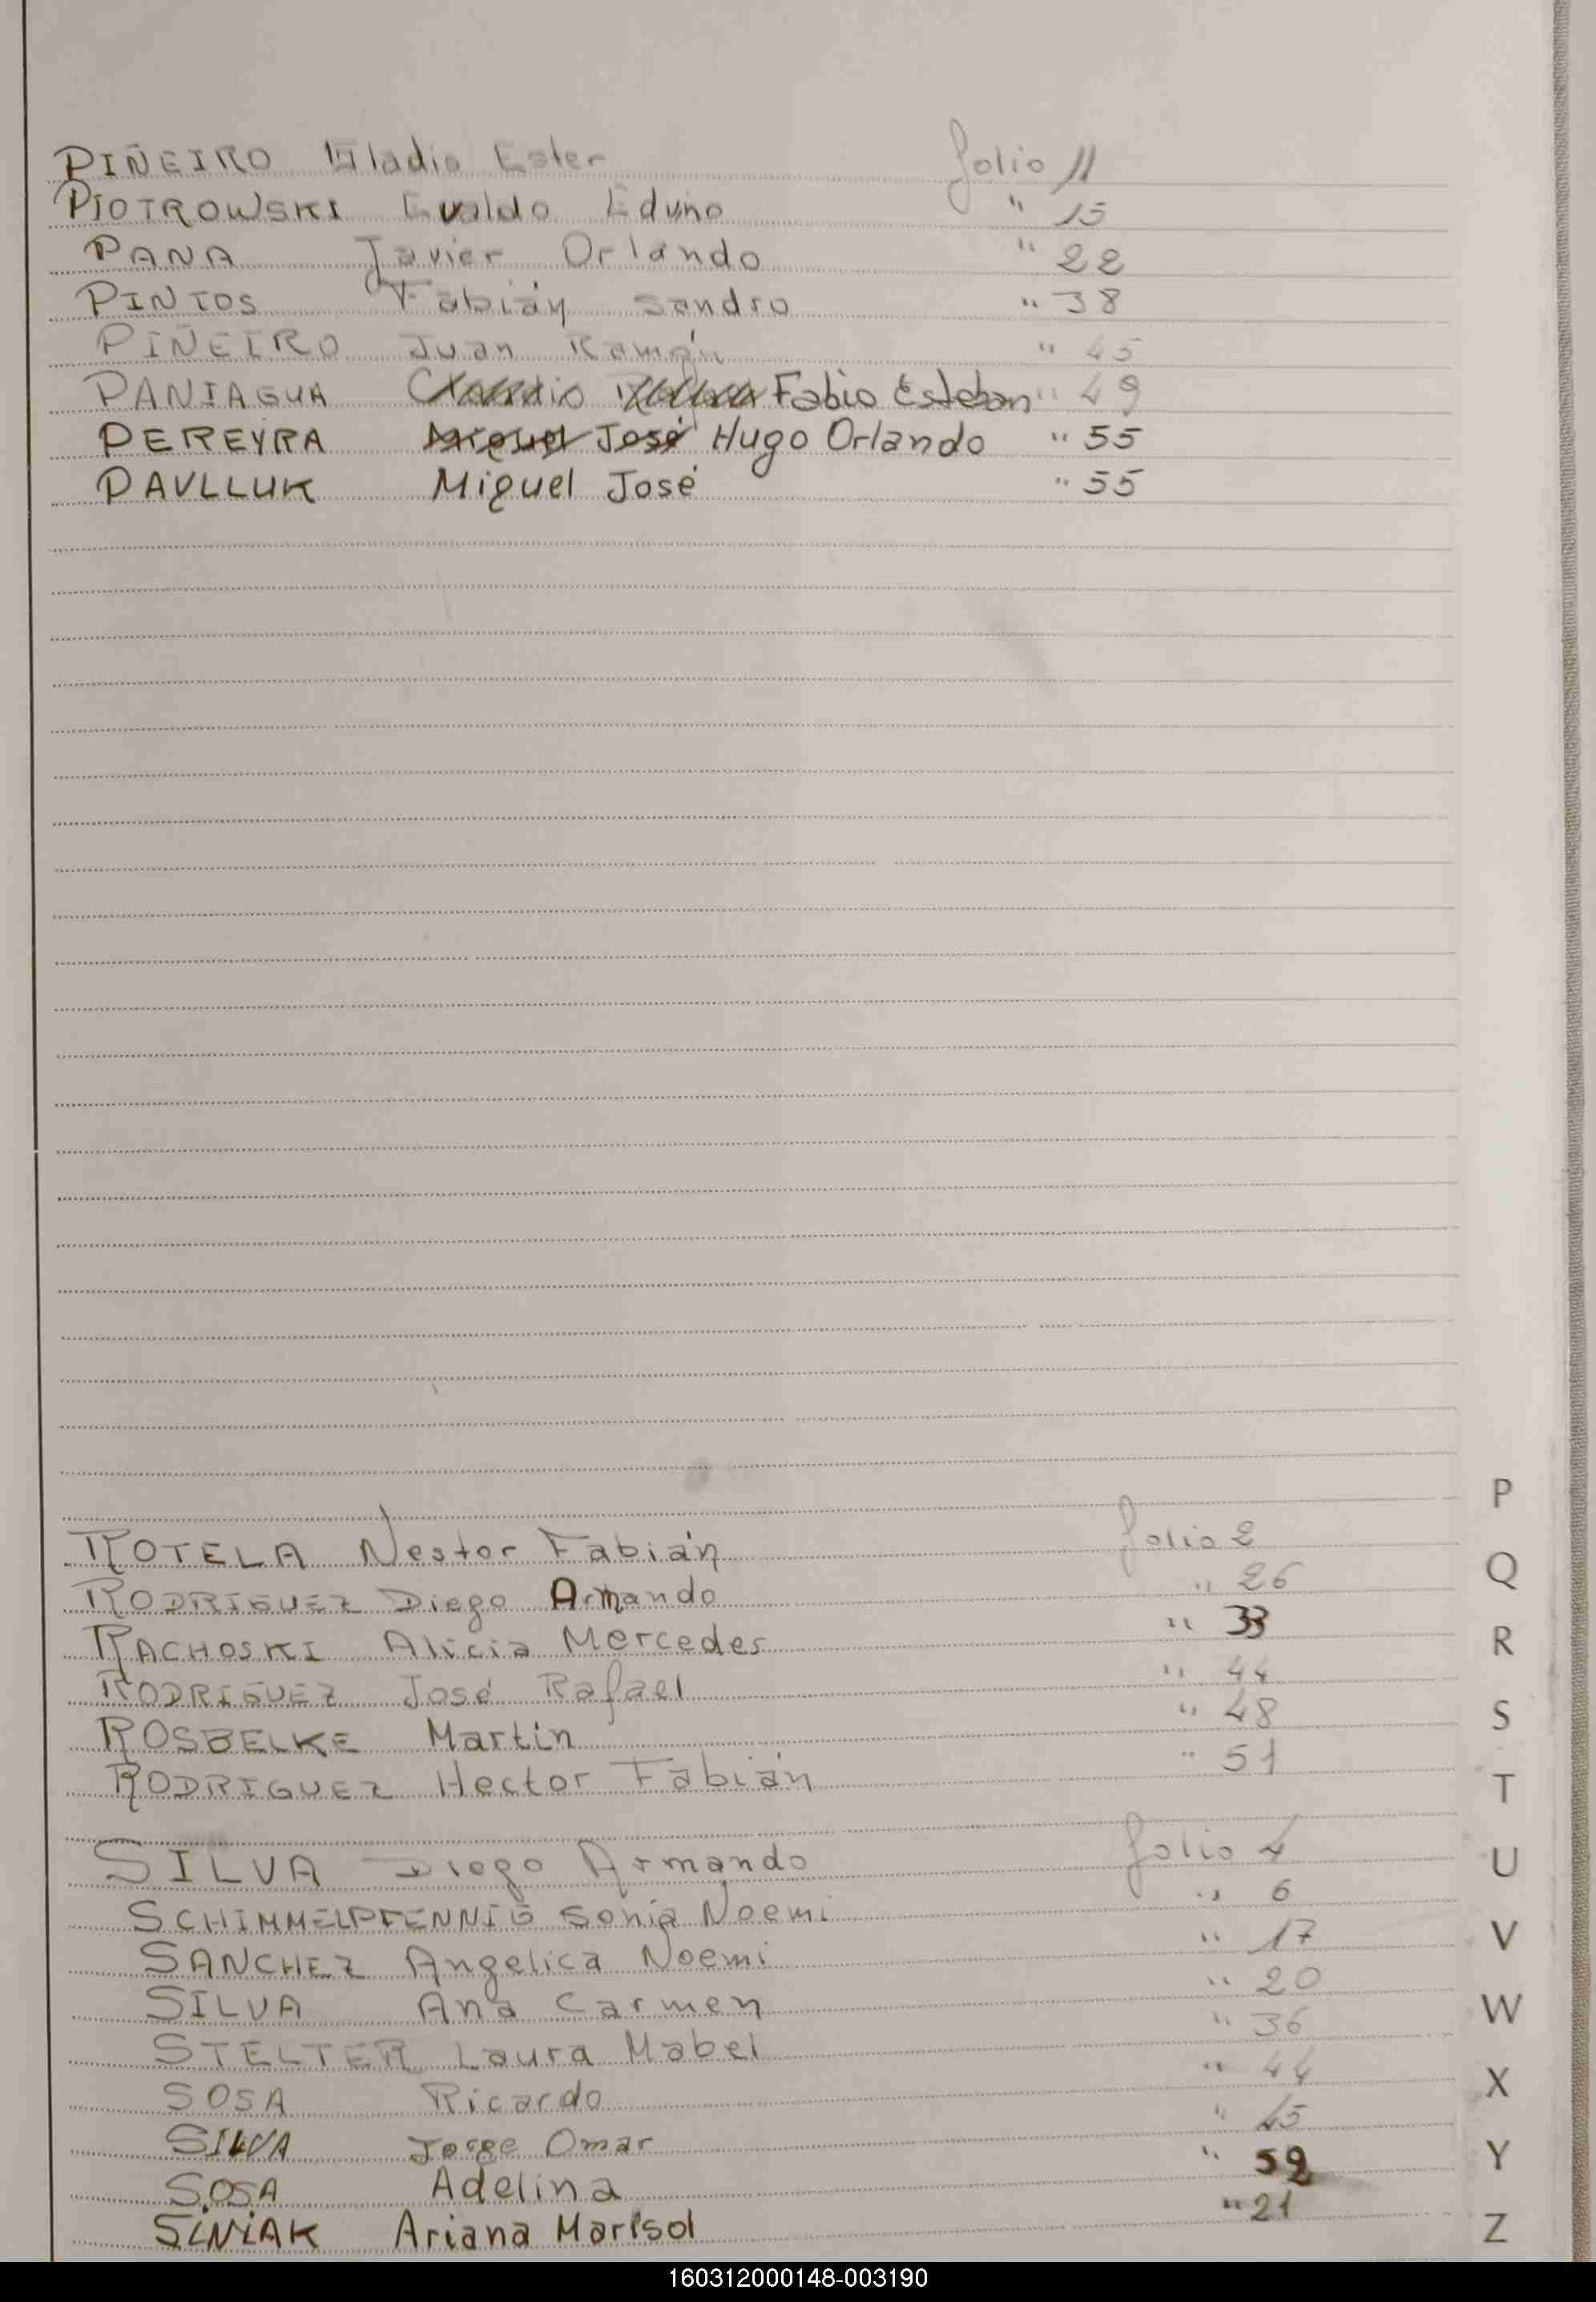 PIÑEIRO Gladis Ester folio 11
PIOTROWSKI Evaldo Eduino " 15
PANA Javier Orlando " 22
PINTOS Fabián Sandro " 38
PIÑEIRO Juan Ramón " 45
PANIAGUA Fabio Esteban " 49
PEREYRA Miguel José Hugo Orlando " 55
PAVLLUK Miguel José " 55
ROTELA Nestor Fabián folio 2
RODRIGUEZ Diego Armando " 26
RACHOSKI Alicia Mercedes " 33
RODRIGUEZ José Rafael " 44
ROSBELKE Martín " 48
RODRIGUEZ Hector Fabián " 51
SILVA Diego Armando folio 4
SCHIMMELPFENNIG Sonia Noemi " 6
SANCHEZ Angelica Noemi " 17
SILVA Ana Carmen " 20
STELTER Laura Mabel " 36
SOSA Ricardo " 44
SILVA Jorge Omar " 45
SOSA Adelina " 52
SINIAK Ariana Marisol " 21
P
Q
R
S
T
U
V
W
X
Y
Z
160312000148-003190